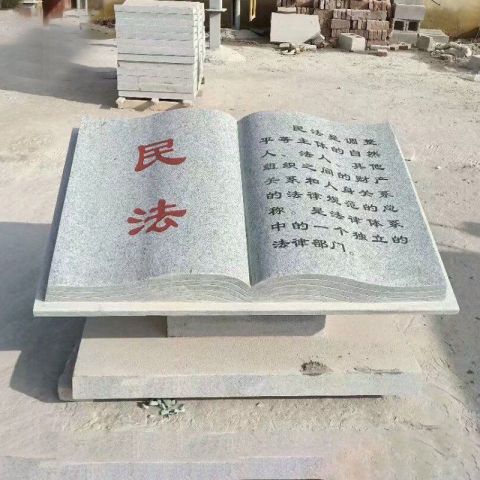 民
法
民法是调整
平等主体的自然
人、法人、其他
组织之间的财产
关系和人身关系
的法律规范的总
称，是法律体系
中的一个独立的
法律部门。